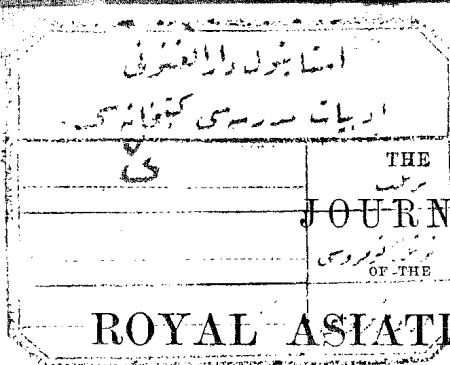 استانبول دارالفنونی
ادبیات مدرسه سی کتبخانه سی
THE
JOURN
نومروسی
OF THE
ROYAL ASIATI